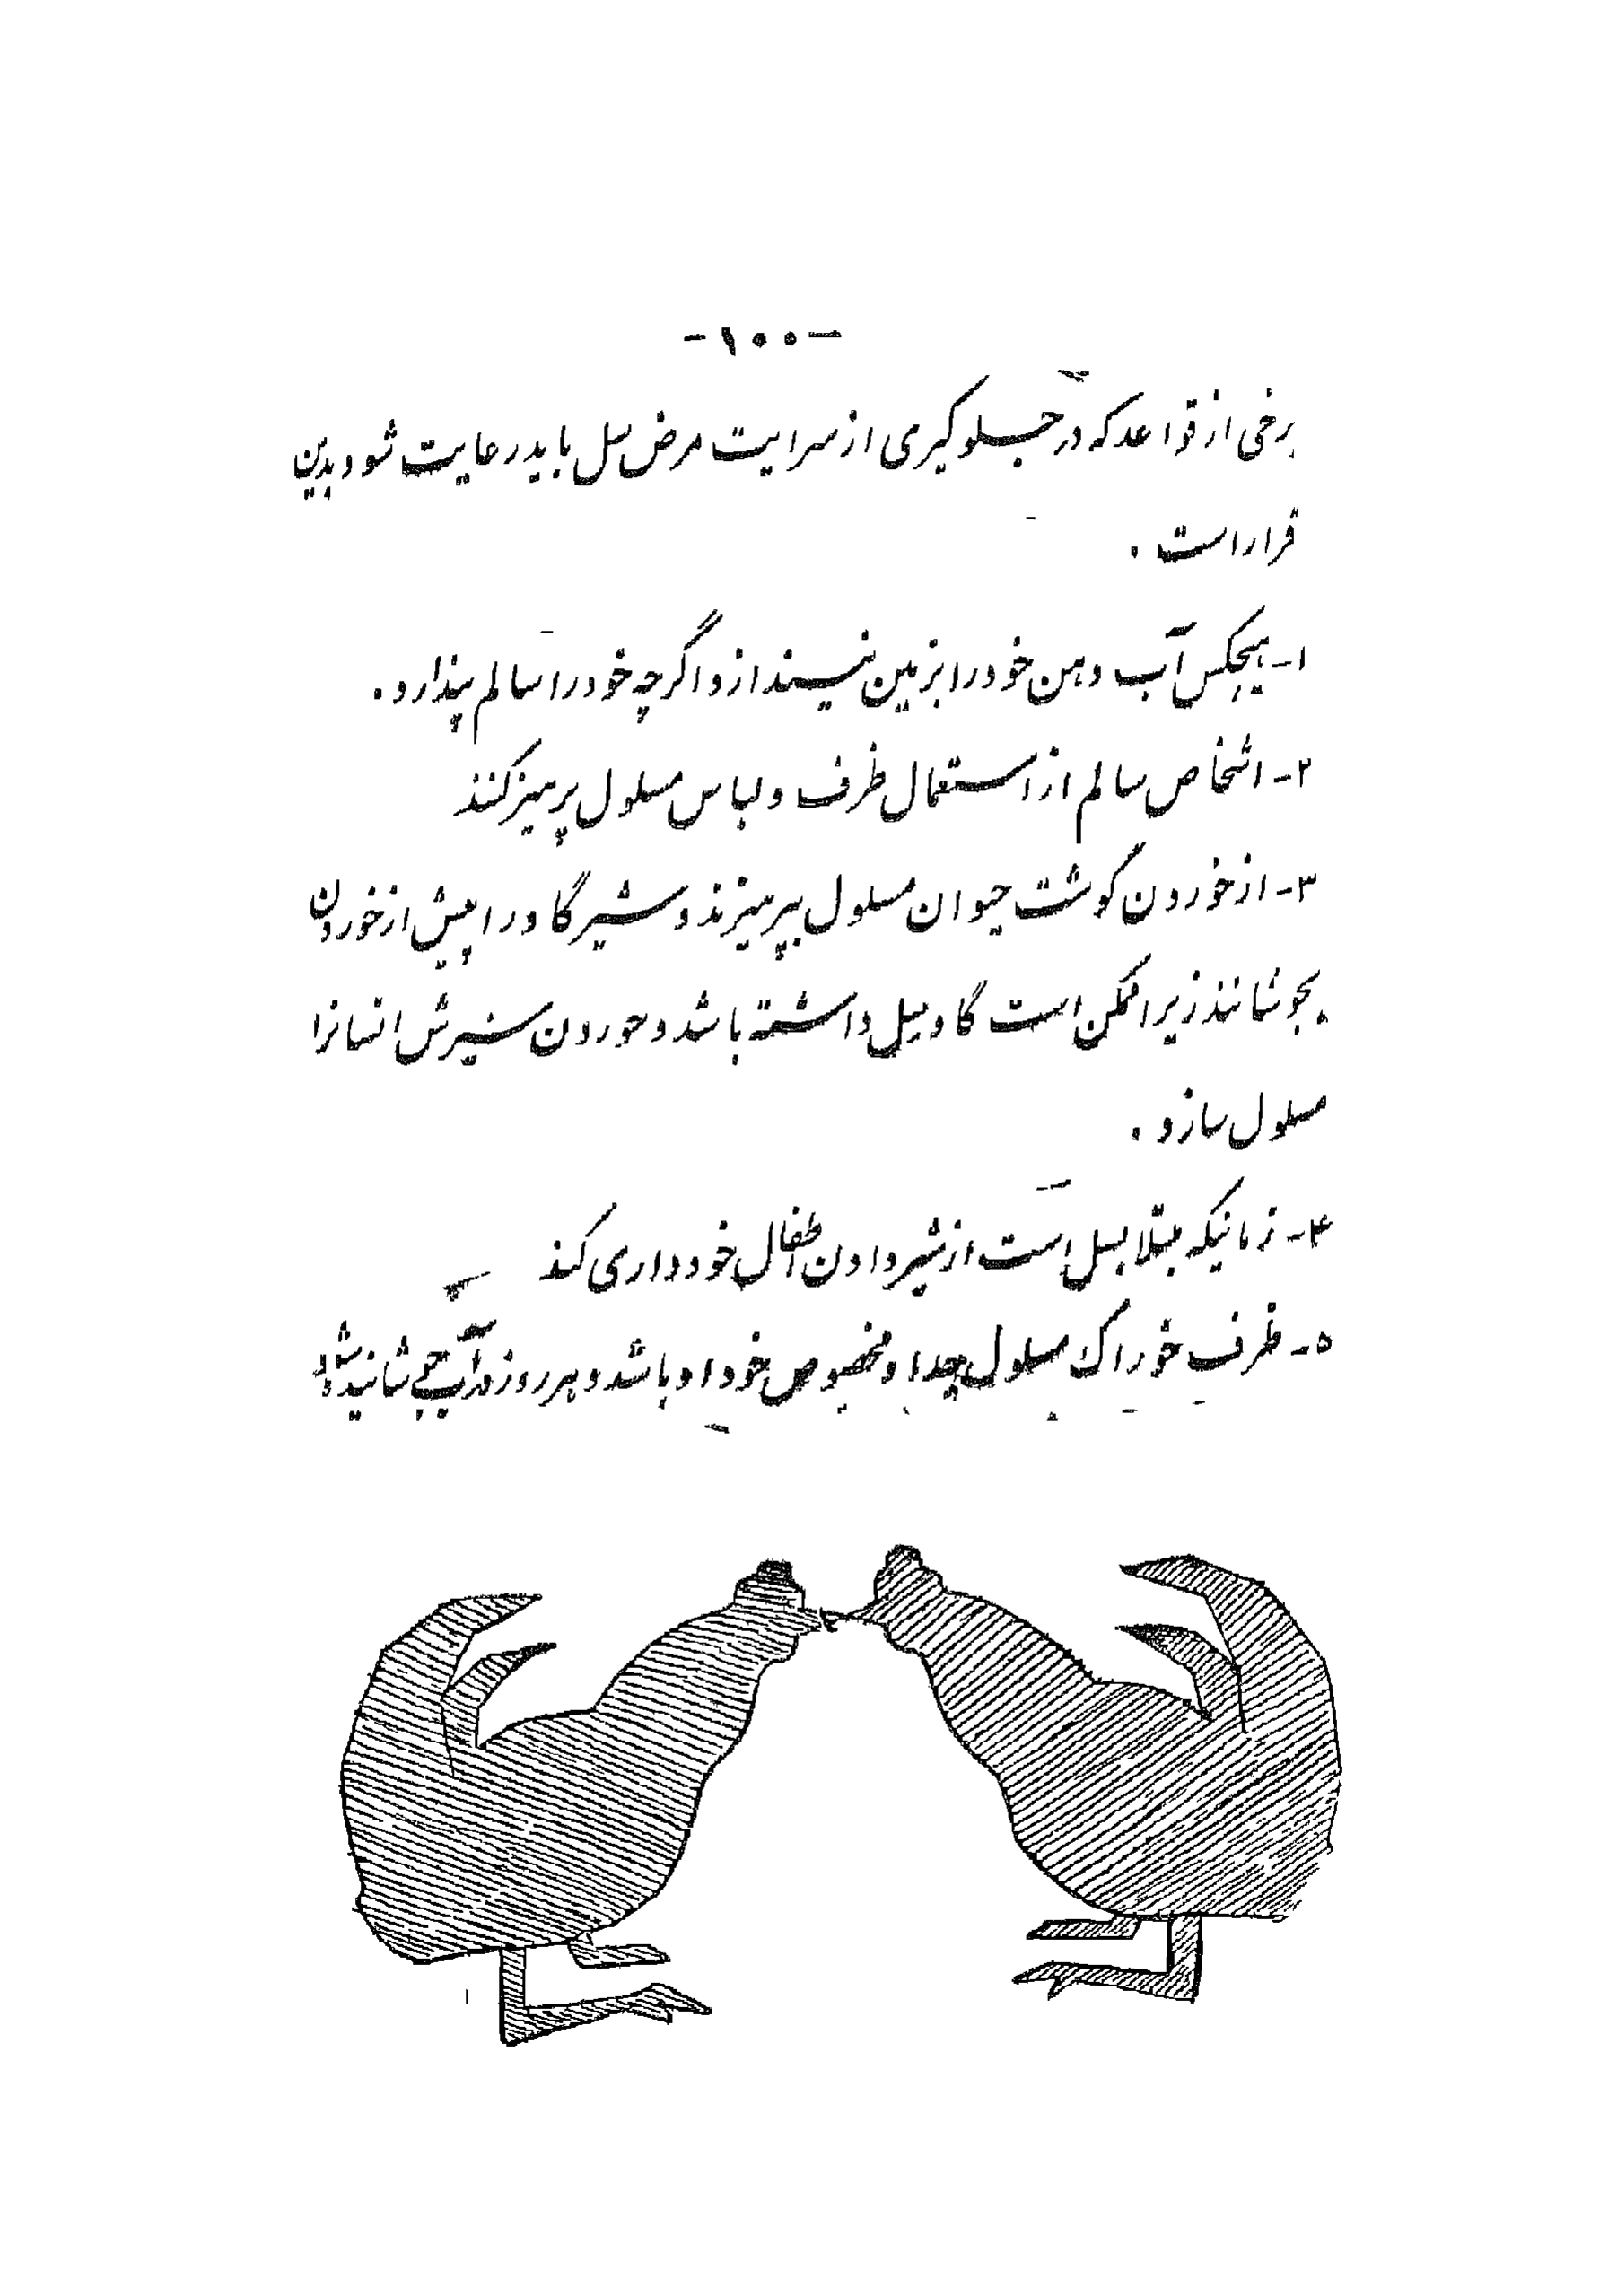 -۱۰۰-
برخی از قواعد که در جلوگیری از سرایت مرض سل باید رعایت شود بدین
قرار است .
۱- هیچکس آب دهن خود را بزمین نیندازد اگرچه خود را سالم پندارد .
۲- اشخاص سالم از استعمال ظرف و لباس مسلول پرهیز کنند
۳- از خوردن گوشت حیوان مسلول بپرهیزند و شیر گاو را پیش از خوردن
بجوشانند زیرا ممکن است گاو سل داشته باشد و خوردن شیرش انسانرا
مسلول سازد .
۴- زمانیکه مبتلا بسل است از شیر دادن اطفال خودداری کند
۵- ظرف خوراک مسلول جدا و مخصوص خود او باشد و هر روز در آب جوشانیده شود